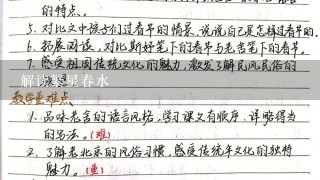 的特点。
5. 对比文中孩子们过春节的情景,说说自己是怎样过春节的。
6. 拓展阅读,对比斯好笔下的春节与老舍笔下的春节。
7. 感受祖国传统文化的魅力,激发了解民风民俗的
解读繁星春水
教学重难点、
1. 品味老舍的语言风格,学习课文有顺序、详略得当
的写法。(难)
2. 了解老北京的风俗习惯,感受传统年文化的独特
魅力。(重)